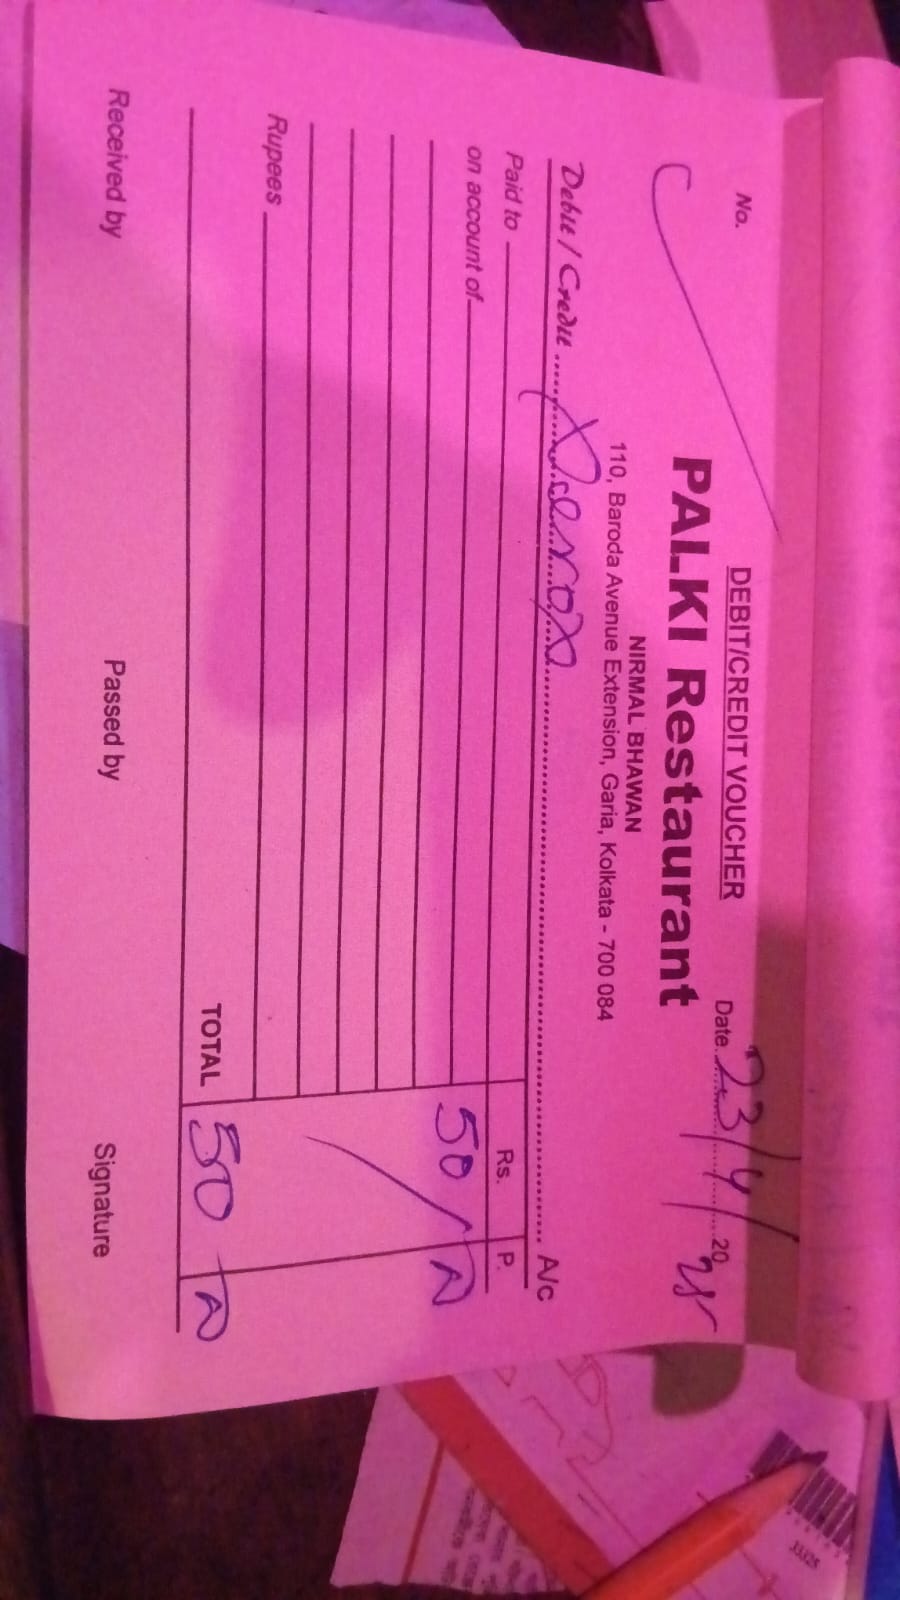 DEBIT/CREDIT VOUCHER
No.
Date 23/4/ 20 25
PALKI Restaurant
NIRMAL BHAWAN
110, Baroda Avenue Extension, Garia, Kolkata - 700 084
Debit / Credit Xerox A/c
Paid to Rs. P.
on account of 50/
Rupees
TOTAL 50
Received by Passed by Signature
33325